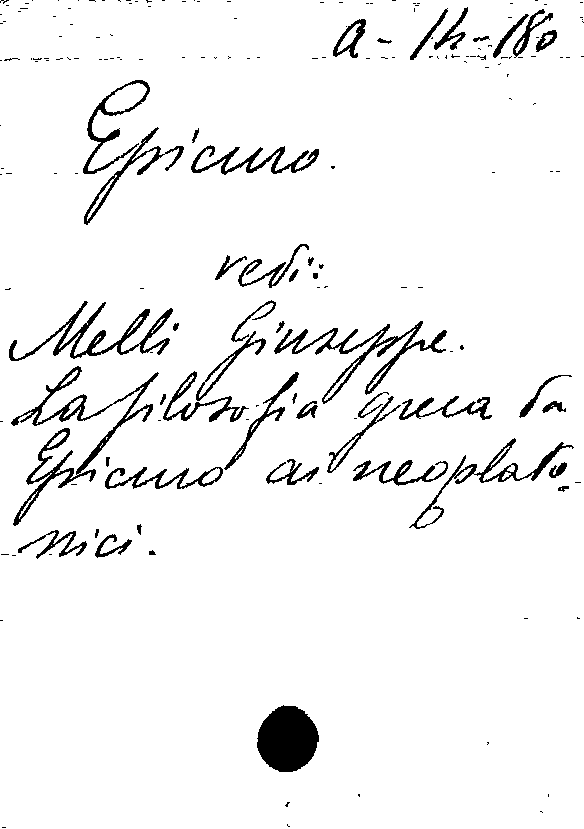 a-14-180
Epicuro.
vedi:
Melli Giuseppe.
La filosofia greca da
Epicuro ai neoplato-
nici.